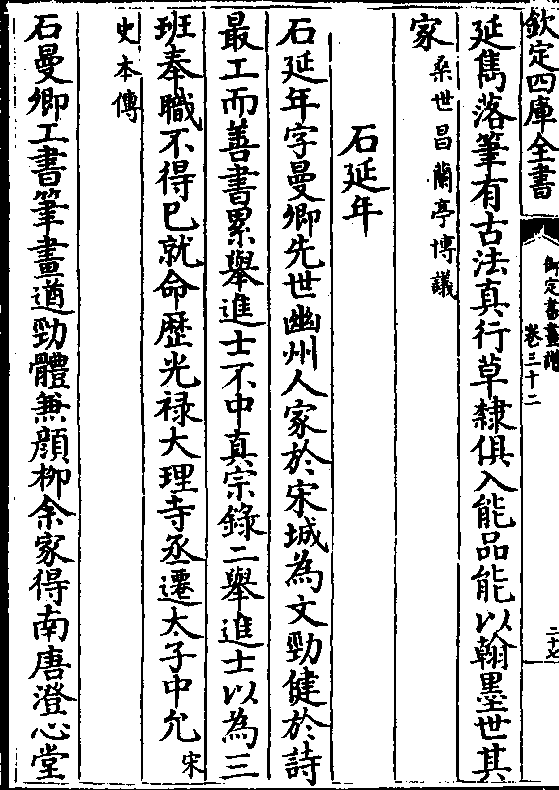 欽定四庫全書
御定書畫譜
卷三十二
二十七
延雋落筆有古法真行草隸俱入能品能以翰墨世其
家桑世昌蘭亭博議
石延年
石延年字曼卿先世幽州人家於宋城為文勁健於詩
最工而善書累舉進士不中真宗錄二舉進士以為三
班奉職不得已就命歴光禄大理寺丞遷太子中允宋
史本傳
石曼卿工書筆畫遒勁體兼顔柳余家得南唐澄心堂